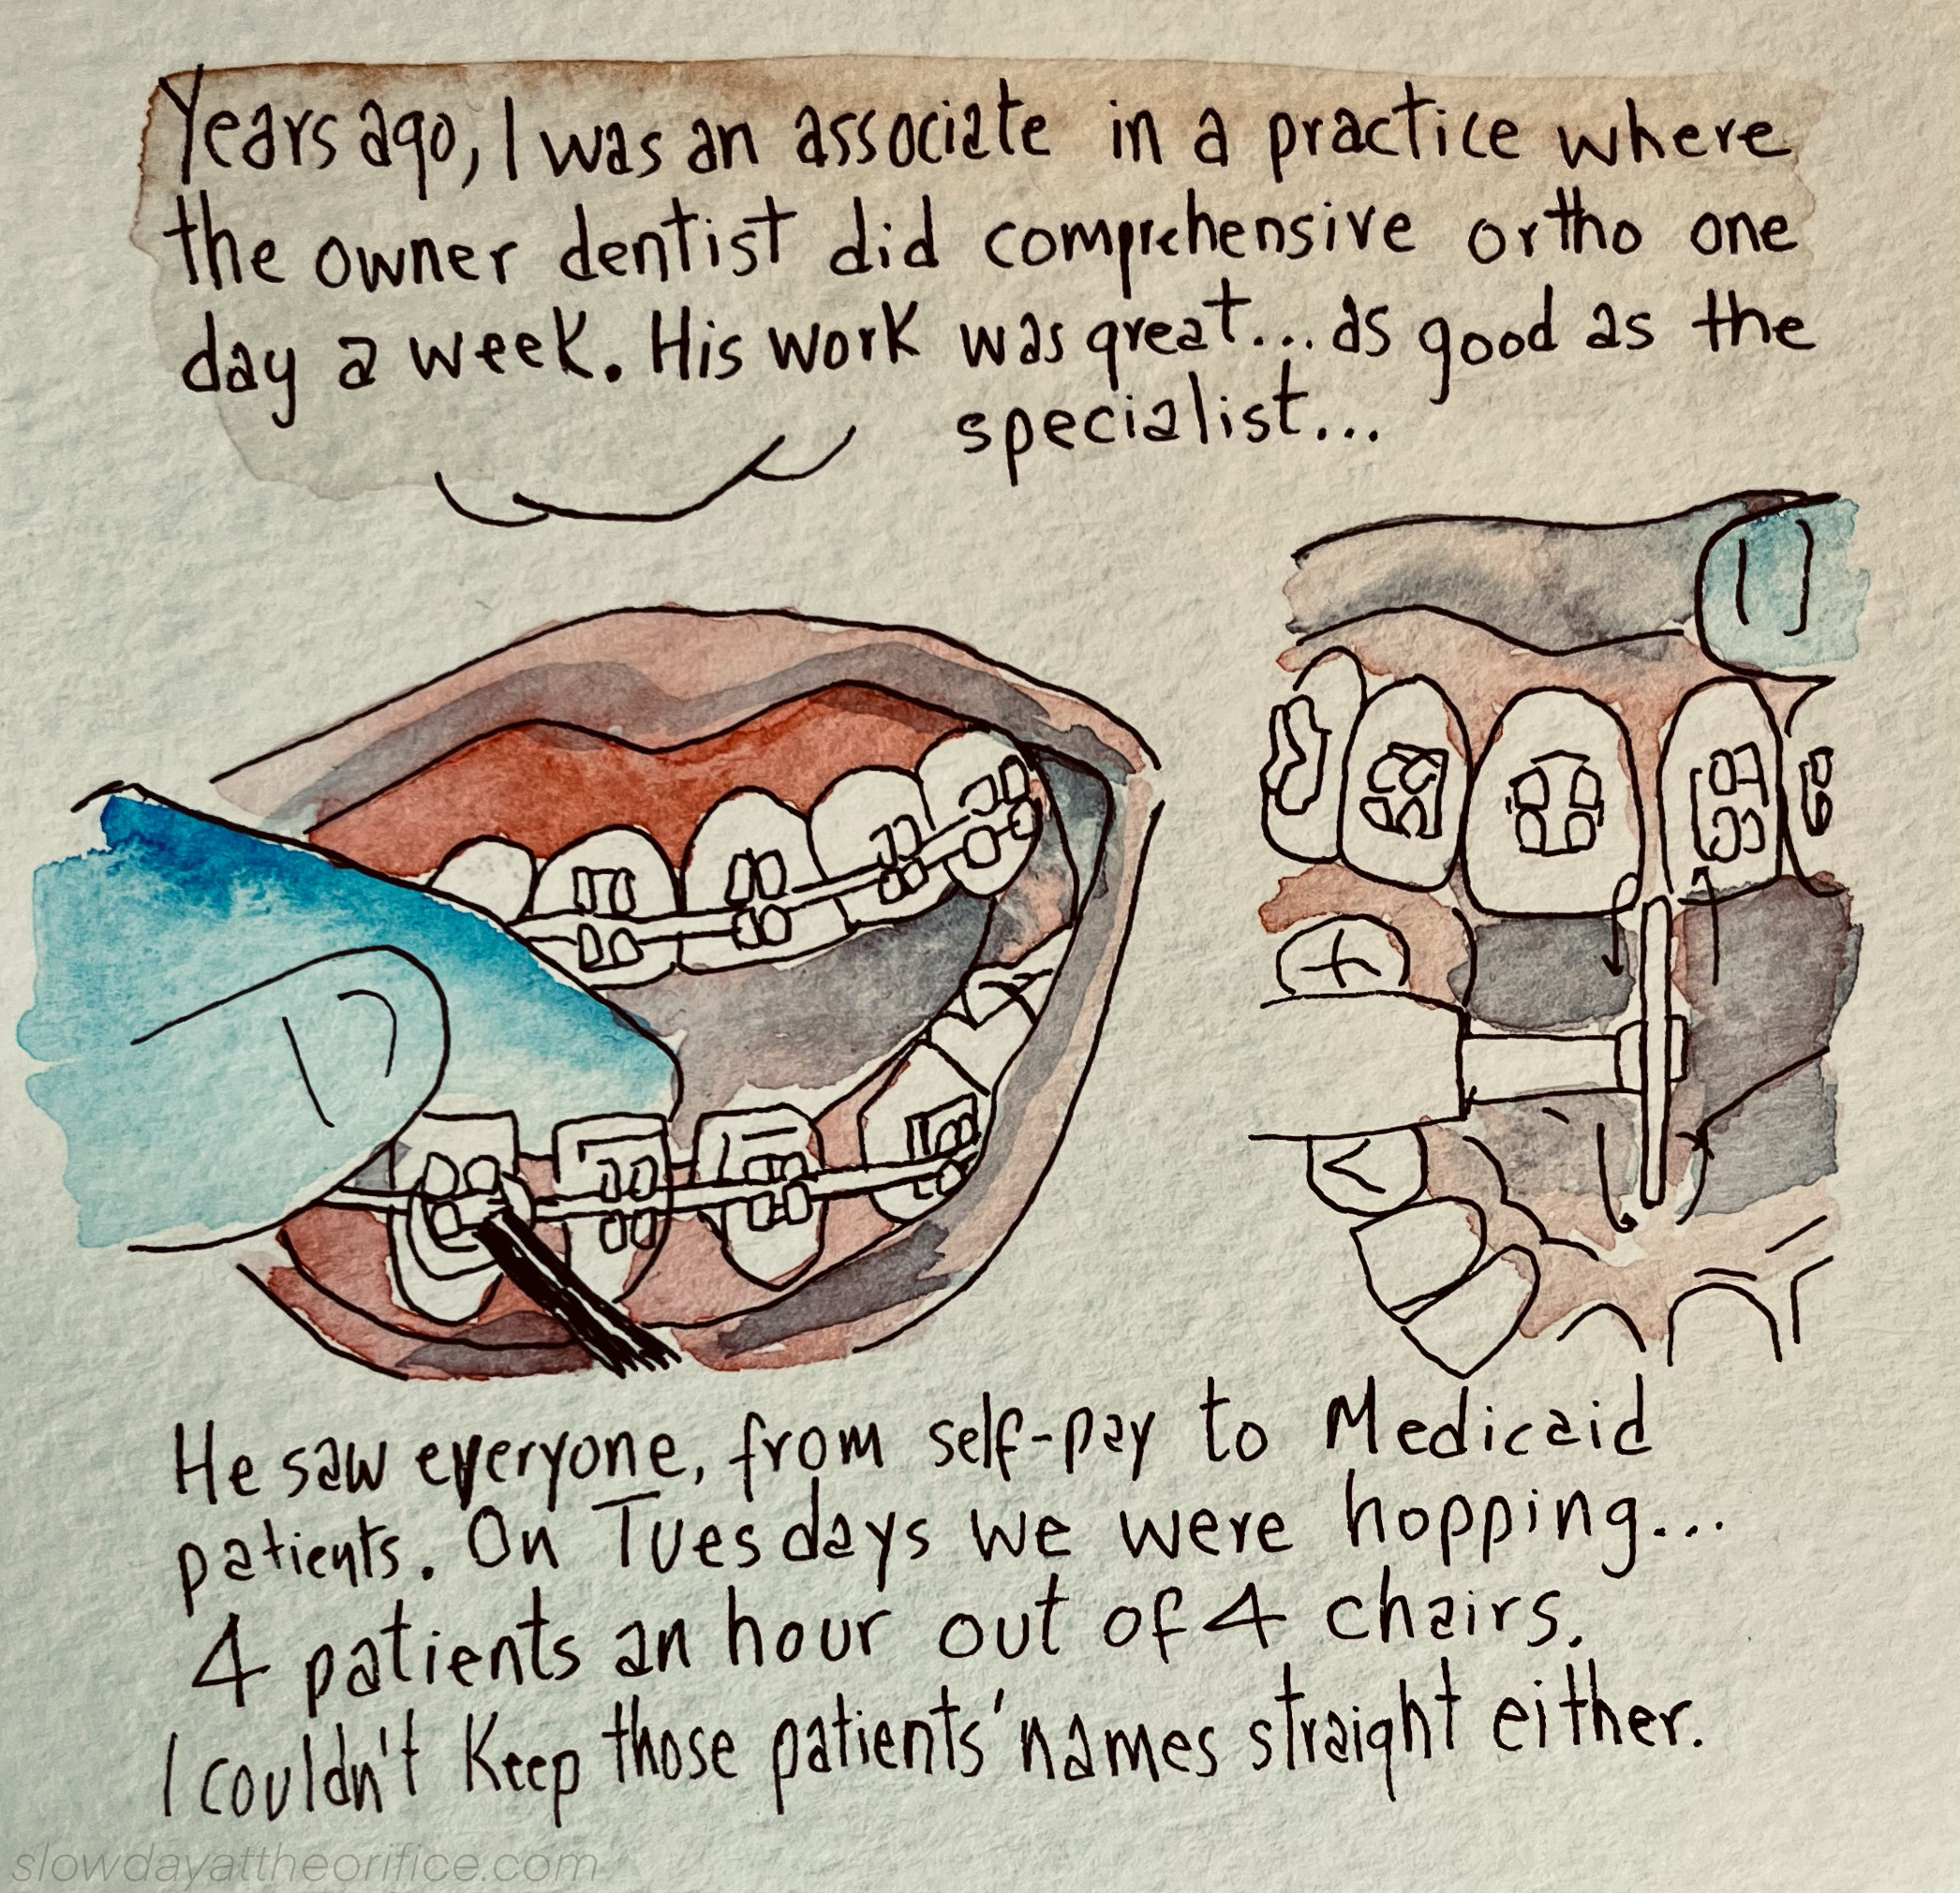 Years ago, I was an associate in a practice where
the owner dentist did comprehensive ortho one
day a week. His work was great... as good as the
specialist...
He saw everyone, from self-pay to Medicaid
patients. On Tuesdays we were hopping...
4 patients an hour out of 4 chairs.
I couldn't keep those patients' names straight either.
slowdayattheorifice.com